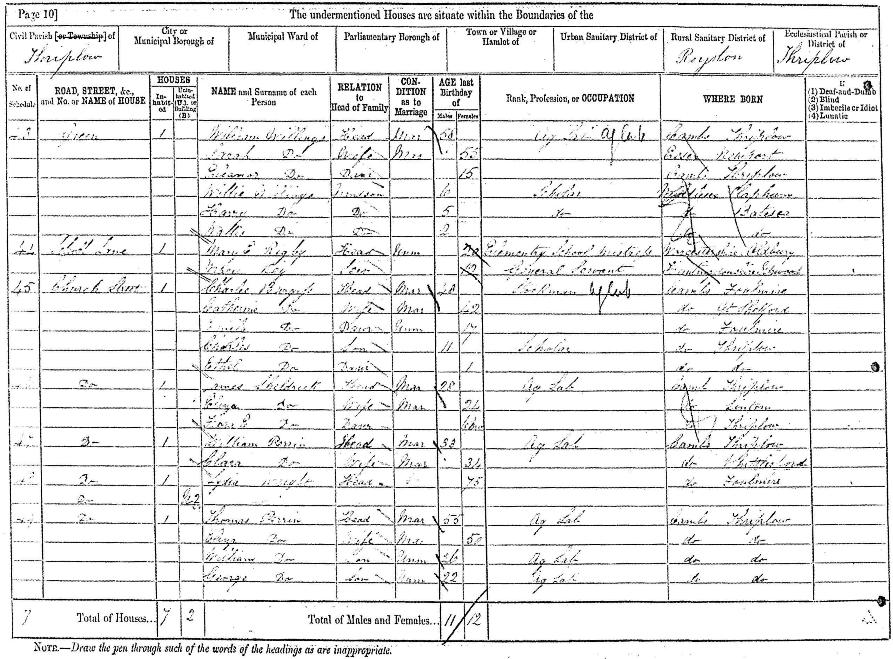 Page 10] The undermentioned Houses are situate within the Boundaries of the
Civil Parish [or Township] of City or Municipal Borough of Municipal Ward of Parliamentary Borough of Town or Village or Hamlet of Urban Sanitary District of Rural Sanitary District of Ecclesiastical Parish or District of
Thriplow Royston Thriplow
No. of Schedule ROAD, STREET, &c., and No. or NAME of HOUSE HOUSES Inhabited Uninhabited (U.), or Building (B.) NAME and Surname of each Person RELATION to Head of Family CONDITION as to Marriage AGE last Birthday of Males Females Rank, Profession, or OCCUPATION WHERE BORN If (1) Deaf-and-Dumb (2) Blind (3) Imbecile or Idiot (4) Lunatic
43 Green 1 William Willings Head Mar 58 Ag Lab Ag Lab Cambs Thriplow
Sarah Do Wife Mar 55 Essex Newport
Eleanor Do Daur 15 Camb Thriplow
Willie Willings Grandson 6 Scholar Clapham
Harry Do Do 5 do do Batsea
Do Do 2 do do
44 Lane 1 Mary E Rigby Head Unm 20 Elementy School Mistress Worcestershire Oldbury
Serv 12 General Servant
45 Church Street 1 Charles Head Mar 48 Stockman Ag Lab Cambs Foulmire
Catherine Do Wife Mar 42 do Gt Shelford
Do Daur Unm 17 do Foulmire
Charles Do Son 11 Scholar do Thriplow
Ethel Do Daur 1 do do
46 Do 1 James Sheldrick Head Mar 28 Ag Lab Camb Thriplow
Eliza Do Wife Mar 24 do Linton
Do Daur Thriplow
47 Do 1 William Perrin Head Mar 33 Ag Lab Cambs Thriplow
Clara Do Wife Mar 34 do
48 Do 1 Lydia Wright Head 75 do Foulmire
Do U 2
49 Do 1 Thomas Perrin Head Mar 55 Ag Lab Cambs Thriplow
Eliza Do Wife Mar 50 do do
William Do Son Unm 26 Ag Lab do do
George Do Son Unm 22 Ag Lab do do
7 Total of Houses... 7 2 Total of Males and Females... 11 12
NOTE.—Draw the pen through such of the words of the headings as are inappropriate.